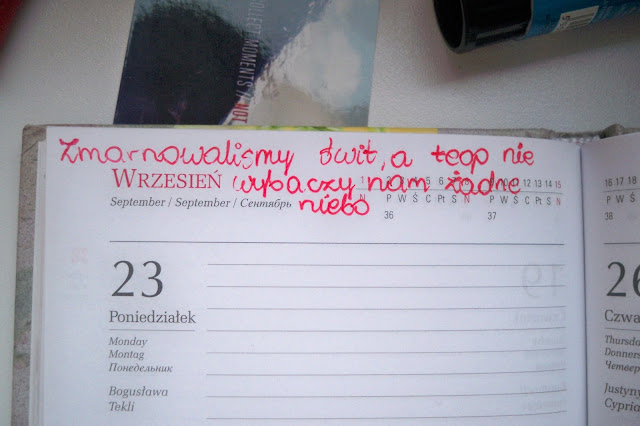 COLLECT MOMENTS // NOT
Zmarnowaliśmy świt, a tego nie
WRZESIEŃ wybaczy nam żadne
niebo
September / September / Сентябрь
1 2 3 12 13 14 15
N P W Ś C Pt S N P W Ś C Pt S N
36 37
16 17 18 19
P W Ś C
38
23
Poniedziałek
Monday
Montag
Понедельник
Bogusława
Tekli
26
Czwa
Thursda
Donner
Четвер
Justyny
Cypria